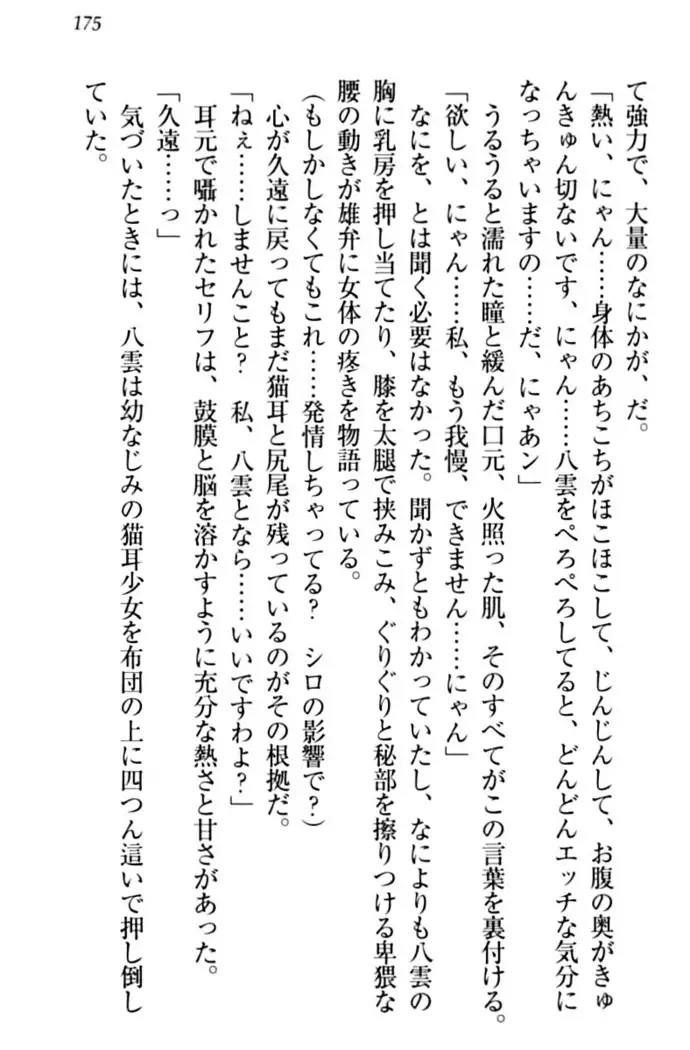 175
て強力で、大量のなにかが、だ。
「熱い、にゃん……身体のあちこちがほこほこして、じんじんして、お腹の奥がきゅ
んきゅん切ないです、にゃん……八雲をぺろぺろしてると、どんどんエッチな気分に
なっちゃいますの……だ、にゃあン」
うるうると濡れた瞳と緩んだ口元、火照った肌、そのすべてがこの言葉を裏付ける。
「欲しい、にゃん……私、もう我慢、できません……にゃん」
なにを、とは聞く必要はなかった。聞かずともわかっていたし、なによりも八雲の
胸に乳房を押し当てたり、膝を太腿で挟みこみ、ぐりぐりと秘部を擦りつける卑猥な
腰の動きが雄弁に女体の疼きを物語っている。
(もしかしなくてもこれ……発情しちゃってる？　シロの影響で？)
心が久遠に戻ってもまだ猫耳と尻尾が残っているのがその根拠だ。
「ねぇ……しませんこと？　私、八雲となら……いいですわよ？」
耳元で囁かれたセリフは、鼓膜と脳を溶かすように充分な熱さと甘さがあった。
「久遠……っ」
気づいたときには、八雲は幼なじみの猫耳少女を布団の上に四つん這いで押し倒し
ていた。